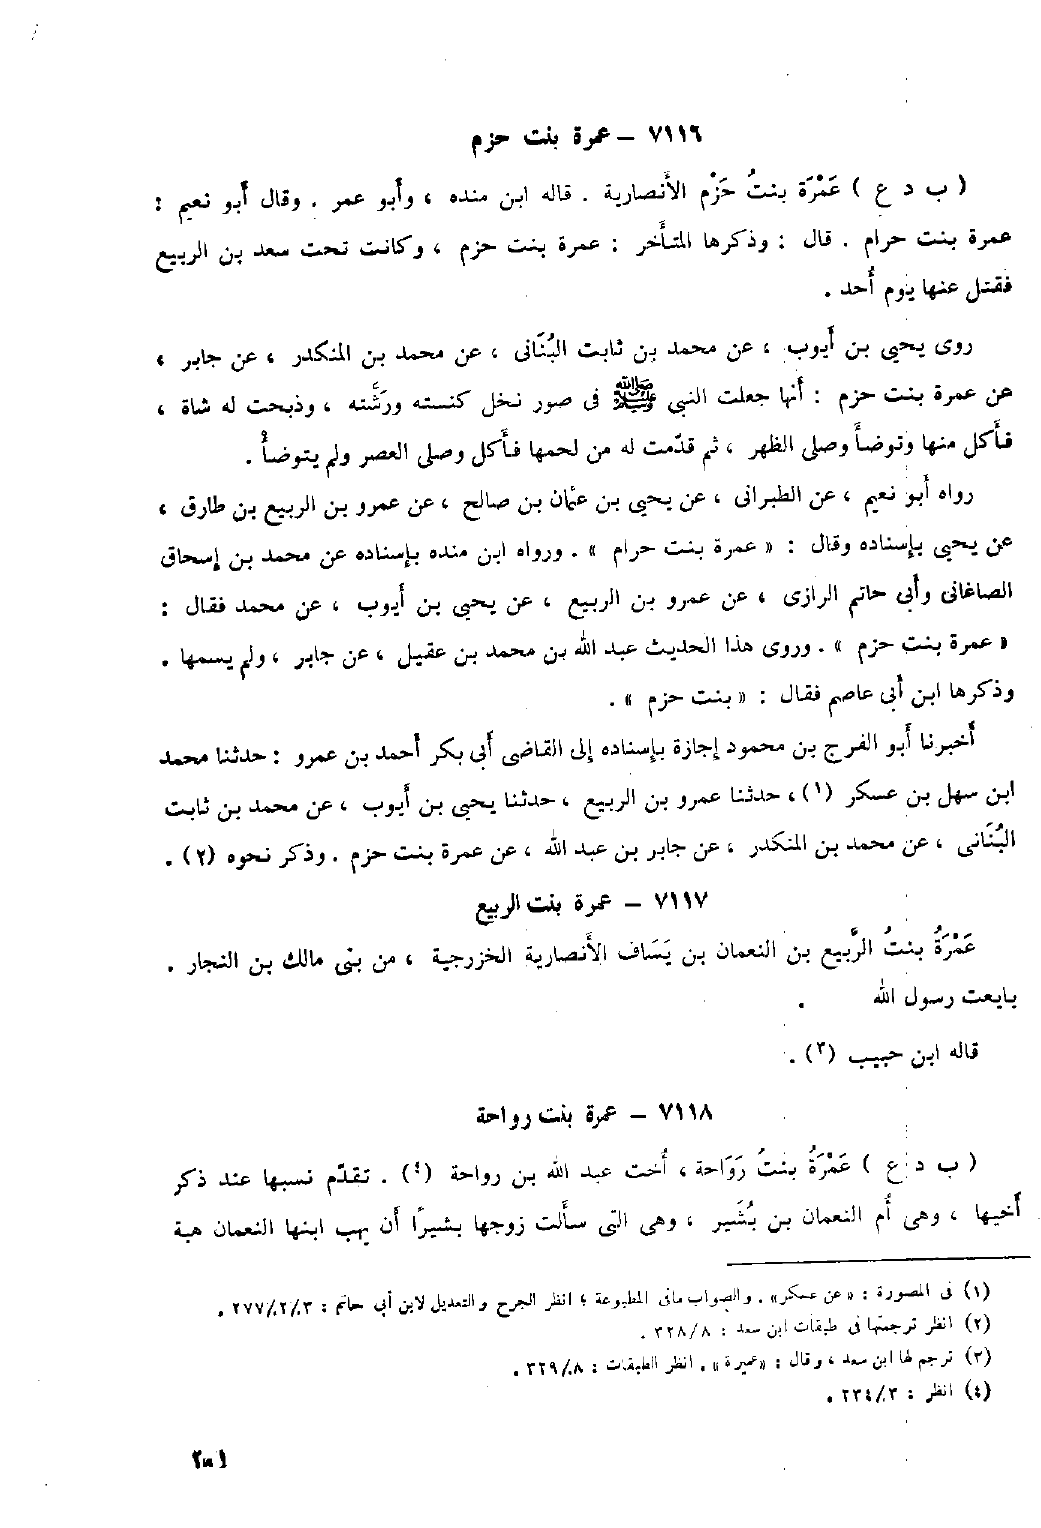 ٧١١٦ – عمرة بنت حزم
( ب د ع ) عَمْرَة بنتُ حَزْم الأَنصارية . قاله ابن منده ، وأَبو عمر . وقال أَبو نعيم :
عمرة بنت حرام . قال : وذكرها المتأَخر : عمرة بنت حزم ، وكانت تحت سعد بن الربيع
فقتل عنها يوم أُحد .
روى يحيى بن أَيوب ، عن محمد بن ثابت البُنَانى ، عن محمد بن المنكدر ، عن جابر ،
عن عمرة بنت حزم : أَنها جعلت النبي ﷺ فى صور نخل كنسته ورَشَّته ، وذبحت له شاة ،
فأَكل منها وتوضأَ وصلى الظهر ، ثم قدّمت له من لحمها فأَكل وصلى العصر ولم يتوضأْ .
رواه أَبو نعيم ، عن الطبرانى ، عن يحيى بن عثمان بن صالح ، عن عمرو بن الربيع بن طارق ،
عن يحيى بإِسناده وقال : « عمرة بنت حرام » . ورواه ابن منده بإِسناده عن محمد بن إِسحاق
الصاغانى وأَبى حاتم الرازى ، عن عمرو بن الربيع ، عن يحيى بن أَيوب ، عن محمد فقال :
« عمرة بنت حزم » . وروى هذا الحديث عبد الله بن محمد بن عقيل ، عن جابر ، ولم يسمها .
وذكرها ابن أَبى عاصم فقال : « بنت حزم » .
أَخبرنا أَبو الفرج بن محمود إِجازة بإِسناده إِلى القاضى أَبى بكر أَحمد بن عمرو : حدثنا محمد
ابن سهل بن عسكر (١) ، حدثنا عمرو بن الربيع ، حدثنا يحيى بن أَيوب ، عن محمد بن ثابت
البُنَانى ، عن محمد بن المنكدر ، عن جابر بن عبد الله ، عن عمرة بنت حزم . وذكر نحوه (٢) .
٧١١٧ – عمرة بنت الربيع
عَمْرَةُ بنتُ الرَّبيع بن النعمان بن يَسَاف الأَنصارية الخزرجية ، من بنى مالك بن النجار .
بايعت رسول الله .
قاله ابن حبيب (٣) .
٧١١٨ – عمرة بنت رواحة
( ب د ع ) عَمْرَةُ بنتُ رَوَاحة ، أُخت عبد الله بن رواحة (٤) . تقدّم نسبها عند ذكر
أَخيها ، وهى أُم النعمان بن بُشَير ، وهى التى سأَلت زوجها بشيرًا أَن يهب ابنها النعمان هبة
(١) فى المصورة : « عن عسكر » . والصواب مافى المطبوعة ؛ انظر الجرح والتعديل لابن أبى حاتم : ٢٧٧/٢/٣ .
(٢) انظر ترجمتها فى طبقات ابن سعد : ٣٢٨/٨ .
(٣) ترجم لها ابن سعد ، وقال : « عميرة » . انظر الطبقات : ٣٢٩/٨ .
(٤) انظر : ٢٣٤/٣ .